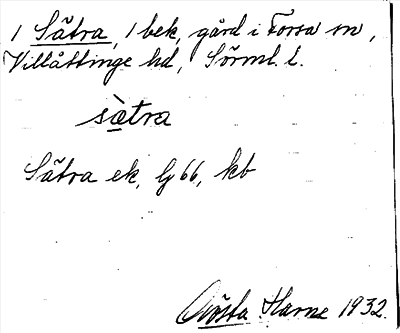 1 Sätra, 1 bek, gård i Forssa sn,
Villåttinge hd, Sörml. l.
sætra
Sätra ek, lj 66, kb
Gösta Harne 1932.